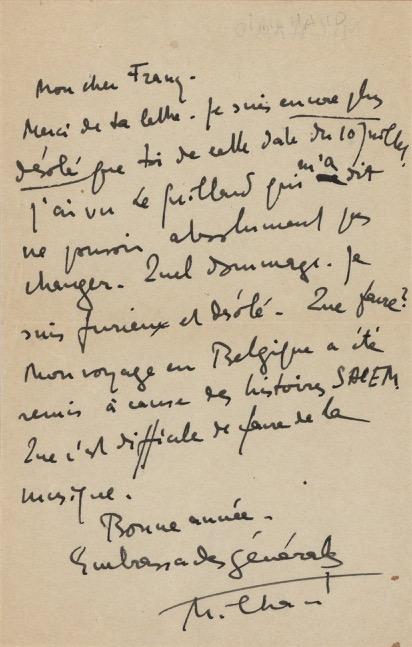 Mon cher Franz.
Merci de ta lettre. Je suis encore plus
désolé que toi de cette date du 10 Juillet
J'ai vu Le Guillard qui m'a dit
ne pouvoir absolument pas
changer. Quel dommage. Je
suis furieux et désolé. Que faire?
Mon voyage en Belgique a été
remis à cause des histoires SACEM
Que c'est difficile de faire de la
musique.
Bonne année.
Embrassades générales